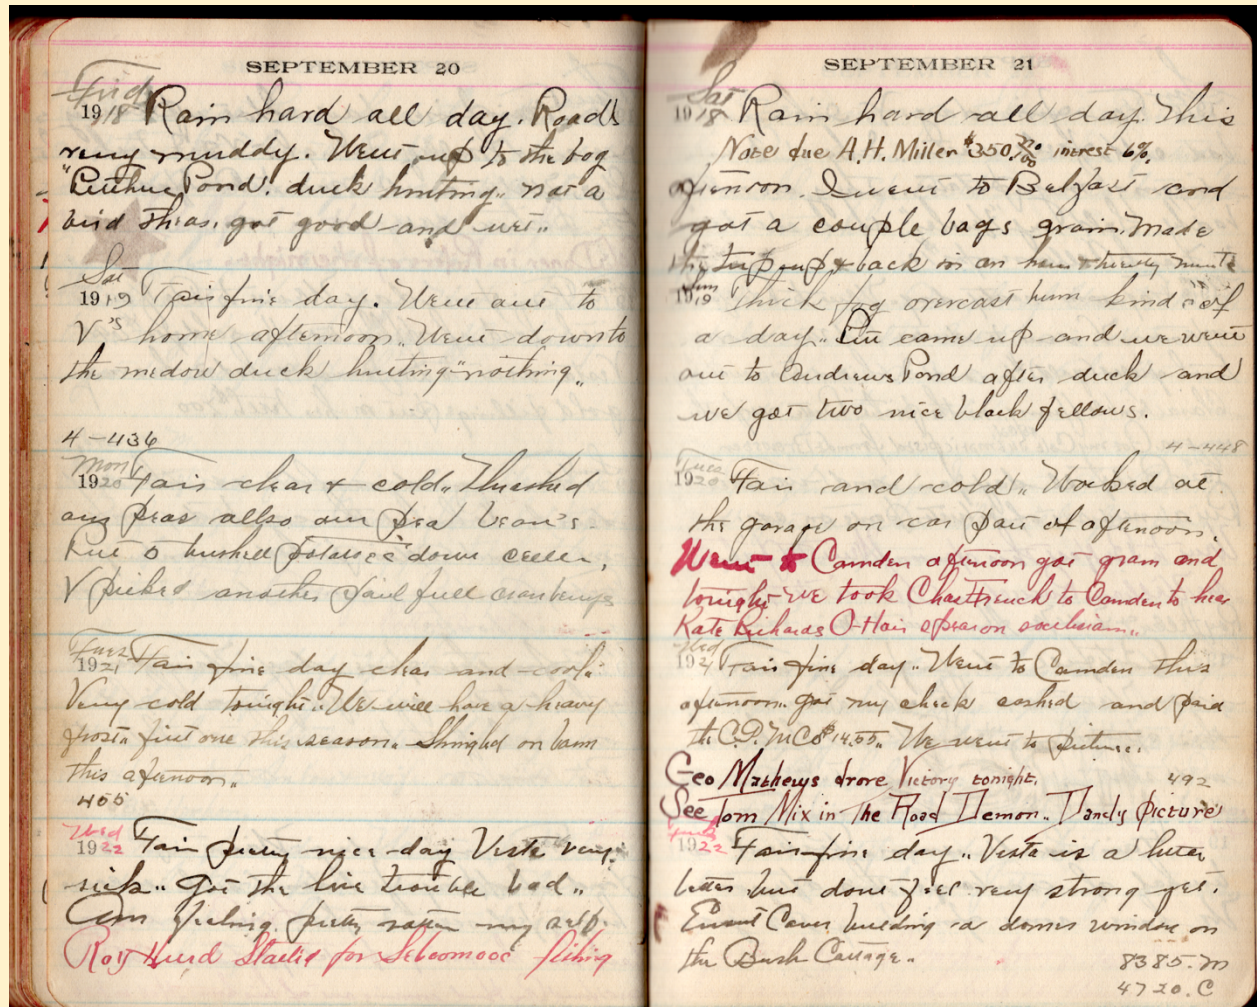 SEPTEMBER 20
Frid
1918 Rain hard all day. Roads
very muddy. Went up to the bog
Pond. duck hunting. not a
bird thias. got good and wet..
Sat
1919 Fair fine day. Went out to
V's home afternoon.. Went down to
the medow duck hunting "nothing..
4-436
Mon
1920 Fair clear & cold.. Thrashed
our peas allso our pea bean's
Put 5 bushell potatoes down celler.
V picked another pail full cranberrys
Tues
1921 Fair fine day clear and cool..
Very cold tonight.. We will have a heavy
frost.. first one this season.. Shingled on barn
this afternoon..
455
Wed
1922 Fair pretty nice day Vesta very
sick.. Got the live trouble bad..
Am feeling pretty rotten my self.
Roy Hurd Started for Seboomooc fishing
SEPTEMBER 21
Sat
1918 Rain hard all day. This
Note due A.H. Miller $350 no/00 interest 6%.
afternoon. I went to Belfast and
got a couple bags grain. Made
the trip up & back in an hour & twenty
Sun
1919 Thick fog overcast hum kind of
a day.. came up and we went
out to Andrews Pond after duck and
we got two nice black fellows.
4-448
Tues
1920 Fair and cold.. Worked at
the garage on car part of afternoon.
Went to Camden afternoon got grain and
tonight we took Chas French to Camden to hear
Kate Richards O-Hair speak on
Wed
1921 Fair fine day.. Went to Camden this
afternoon.. got my check cashed and paid
the C.P. M Co $14.55.. We went to picture.
Geo Mathews drove Victory tonight. 492
See Tom Mix in The Road Demon.. Dandy picture
1922 Fair fine day.. Vesta is a little
better but dont feel very strong yet.
building a dormer window on
the Bush Cottage..
8385.M
4720.C